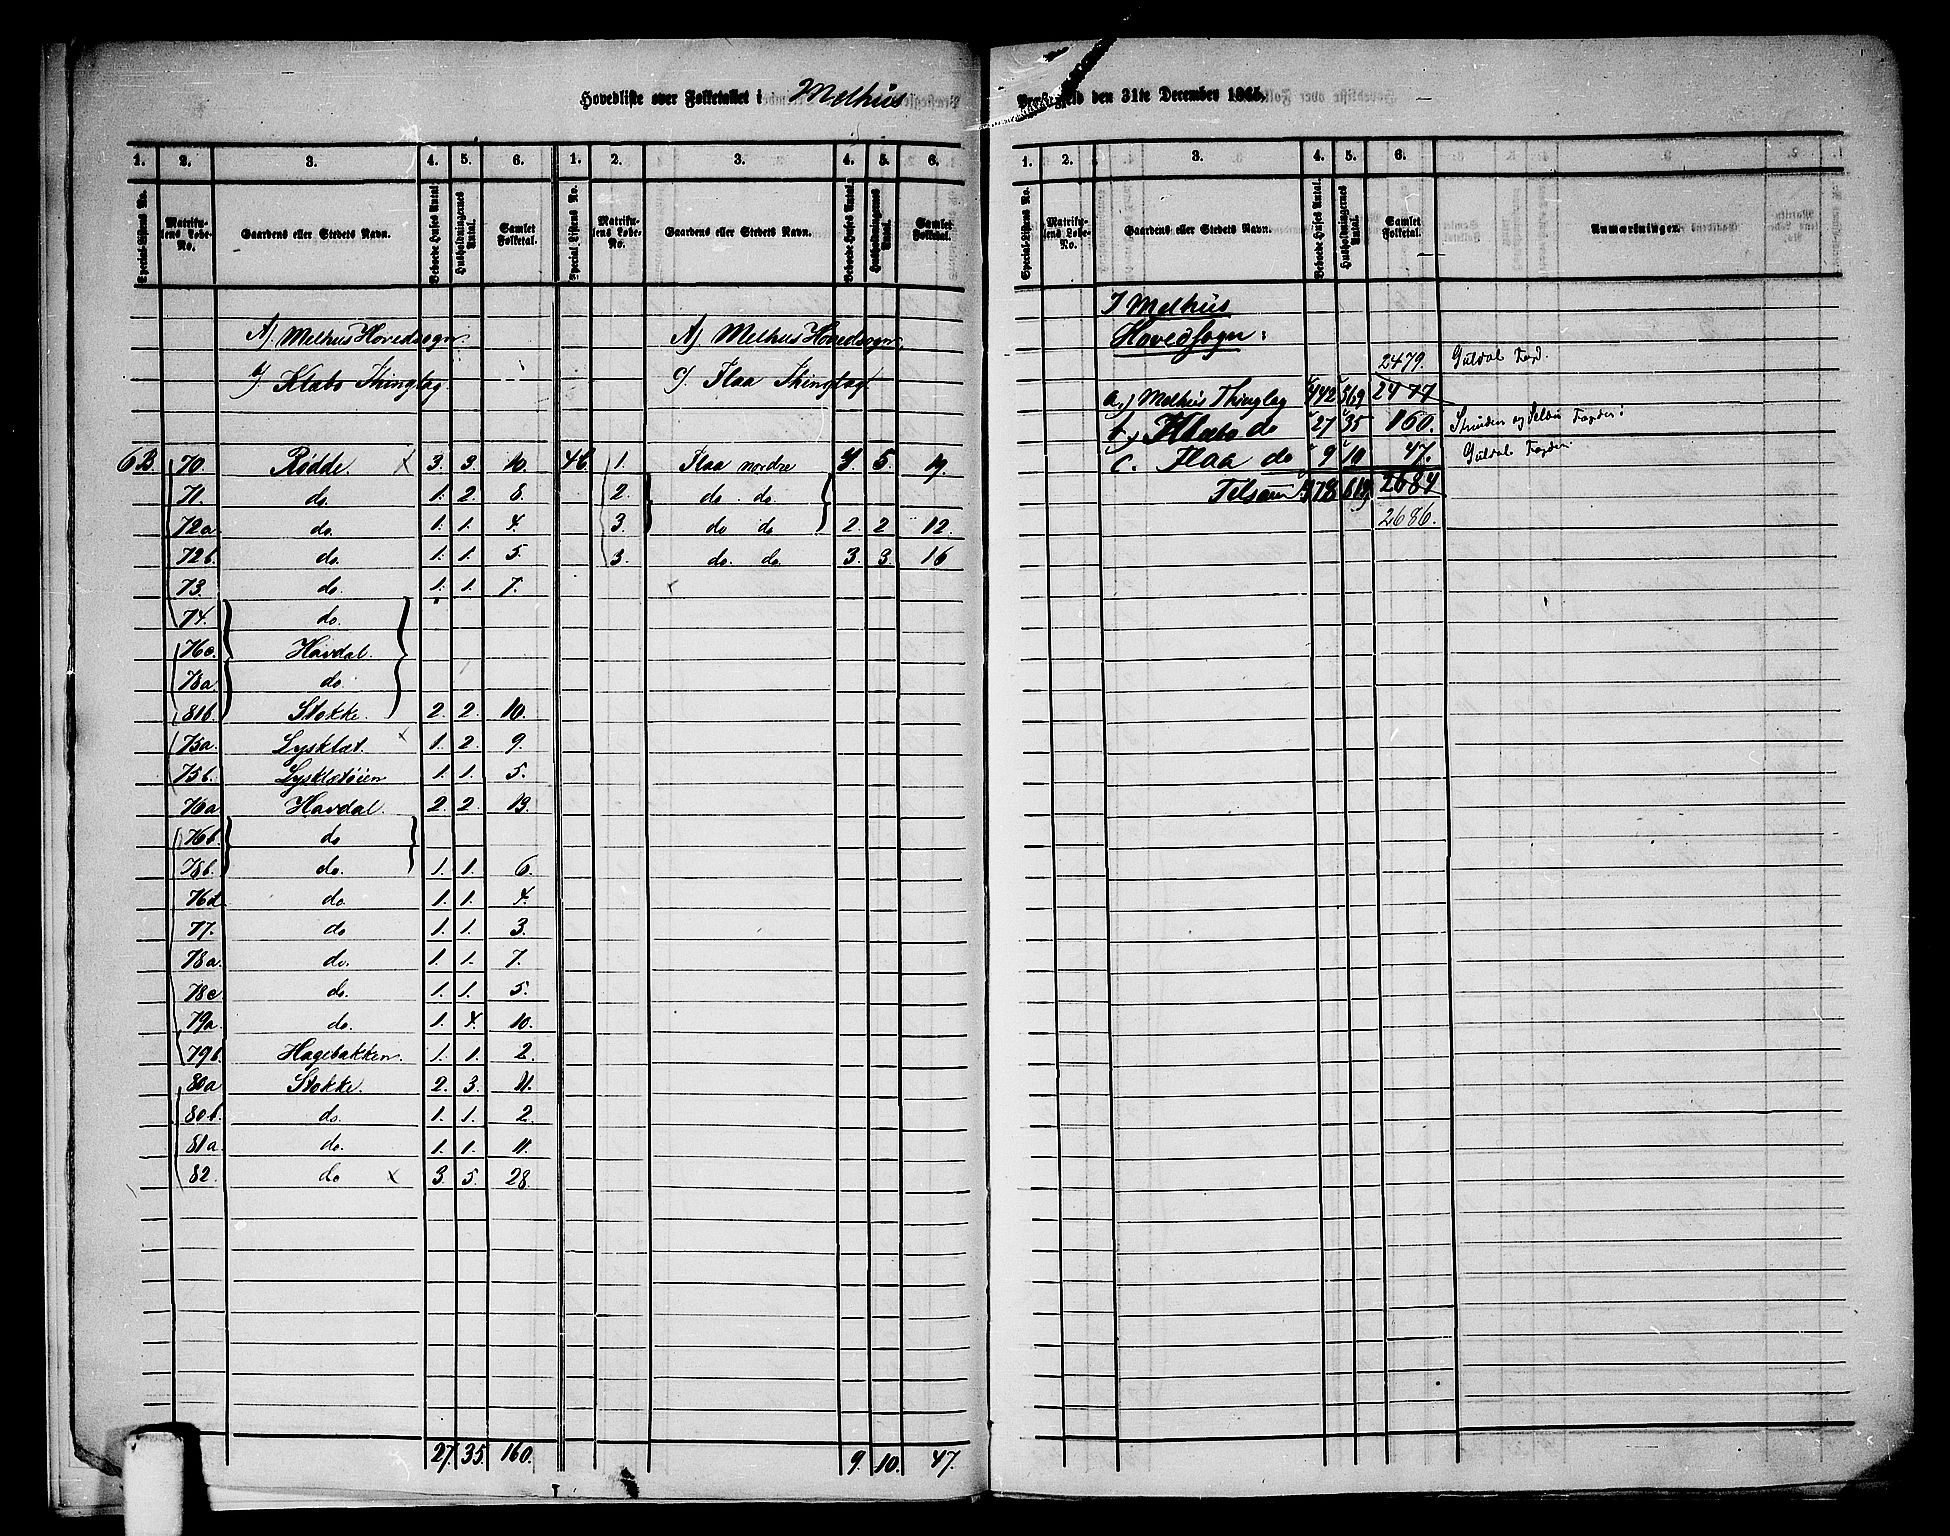 Hovedliste over Folketallet i Melhus Præstegjeld den 31te December 1865.
1. 2. 3. 4. 5. 6. 1. 2. 3. 4. 5. 6.
Special-Listens No. Matrikulens Løbe-No. Gaardens eller Stedets Navn. Beboede Huses Antal. Husholdningernes Antal. Samlet Folketal. Special-Listens No. Matrikulens Løbe-No. Gaardens eller Stedets Navn. Beboede Huses Antal. Husholdningernes Antal. Samlet Folketal.
A) Melhus Hovedsogn.
Klæbo Thinglag.
6B. 70. Rødde. x 3. 3. 10.
71. do. 1. 2. 8.
72a do. 1. 1. 4.
72b. do. 1. 1. 5.
73. do. 1. 1. 7.
74. do.
76c. Havdal.
78a do
81b. Stokke. 2. 2. 10.
75a. Lysklæt. x 1. 2. 9.
75b. Lysklætøien 1. 1. 5.
76a Havdal. 2. 2. 13.
76b. do
78b. do. 1. 1. 6.
76d do. 1. 1. 4.
77. do 1. 1. 3.
78a. do. 1. 1. 7.
78c do. 1. 1. 5.
79a. do. 1. 4. 10.
79b. Hagebakken. 1. 1. 2.
80a Stokke. 2. 3. 11.
80b. do. 1. 1. 2.
81a do. 1. 1. 11.
82. do x 3. 5. 28.
27. 35. 160.
A) Melhus Hovedsogn.
Flaa Thinglag.
4b. 1. Flaa nordre 4. 5 19.
2. do. do.
3. do do 2. 2 12.
3. do. do. 3. 3. 16
x
9. 10. 47.
1. 2. 3. 4. 5. 6.
Special-Listens No. Matrikulens Løbe-No. Gaardens eller Stedets Navn. Beboede Huses Antal. Husholdningernes Antal. Samlet Folketal. Anmærkninger.
I Melhus
Hovedsogn:
2479. Guldal Fogd.
a.) Melhus Thinglag 442 569 2477
b.) Klæbo do 27 35 160. Strinden og Selbu Fogderi
c. Flaa do 9 10 47. Guldal Fogderi
Tilsam 478 2684
2686.